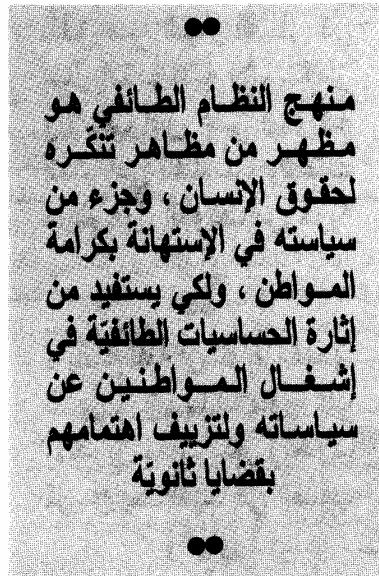 منهج النظام الطائفي هو
مظهر من مظاهر تنكّره
لحقوق الإنسان ، وجزء من
سياسته في الإستهانة بكرامة
المواطن ، ولكي يستفيد من
إثارة الحساسيات الطائفيّة في
إشغال المواطنين عن
سياساته ولتزييف اهتمامهم
بقضايا ثانويّة